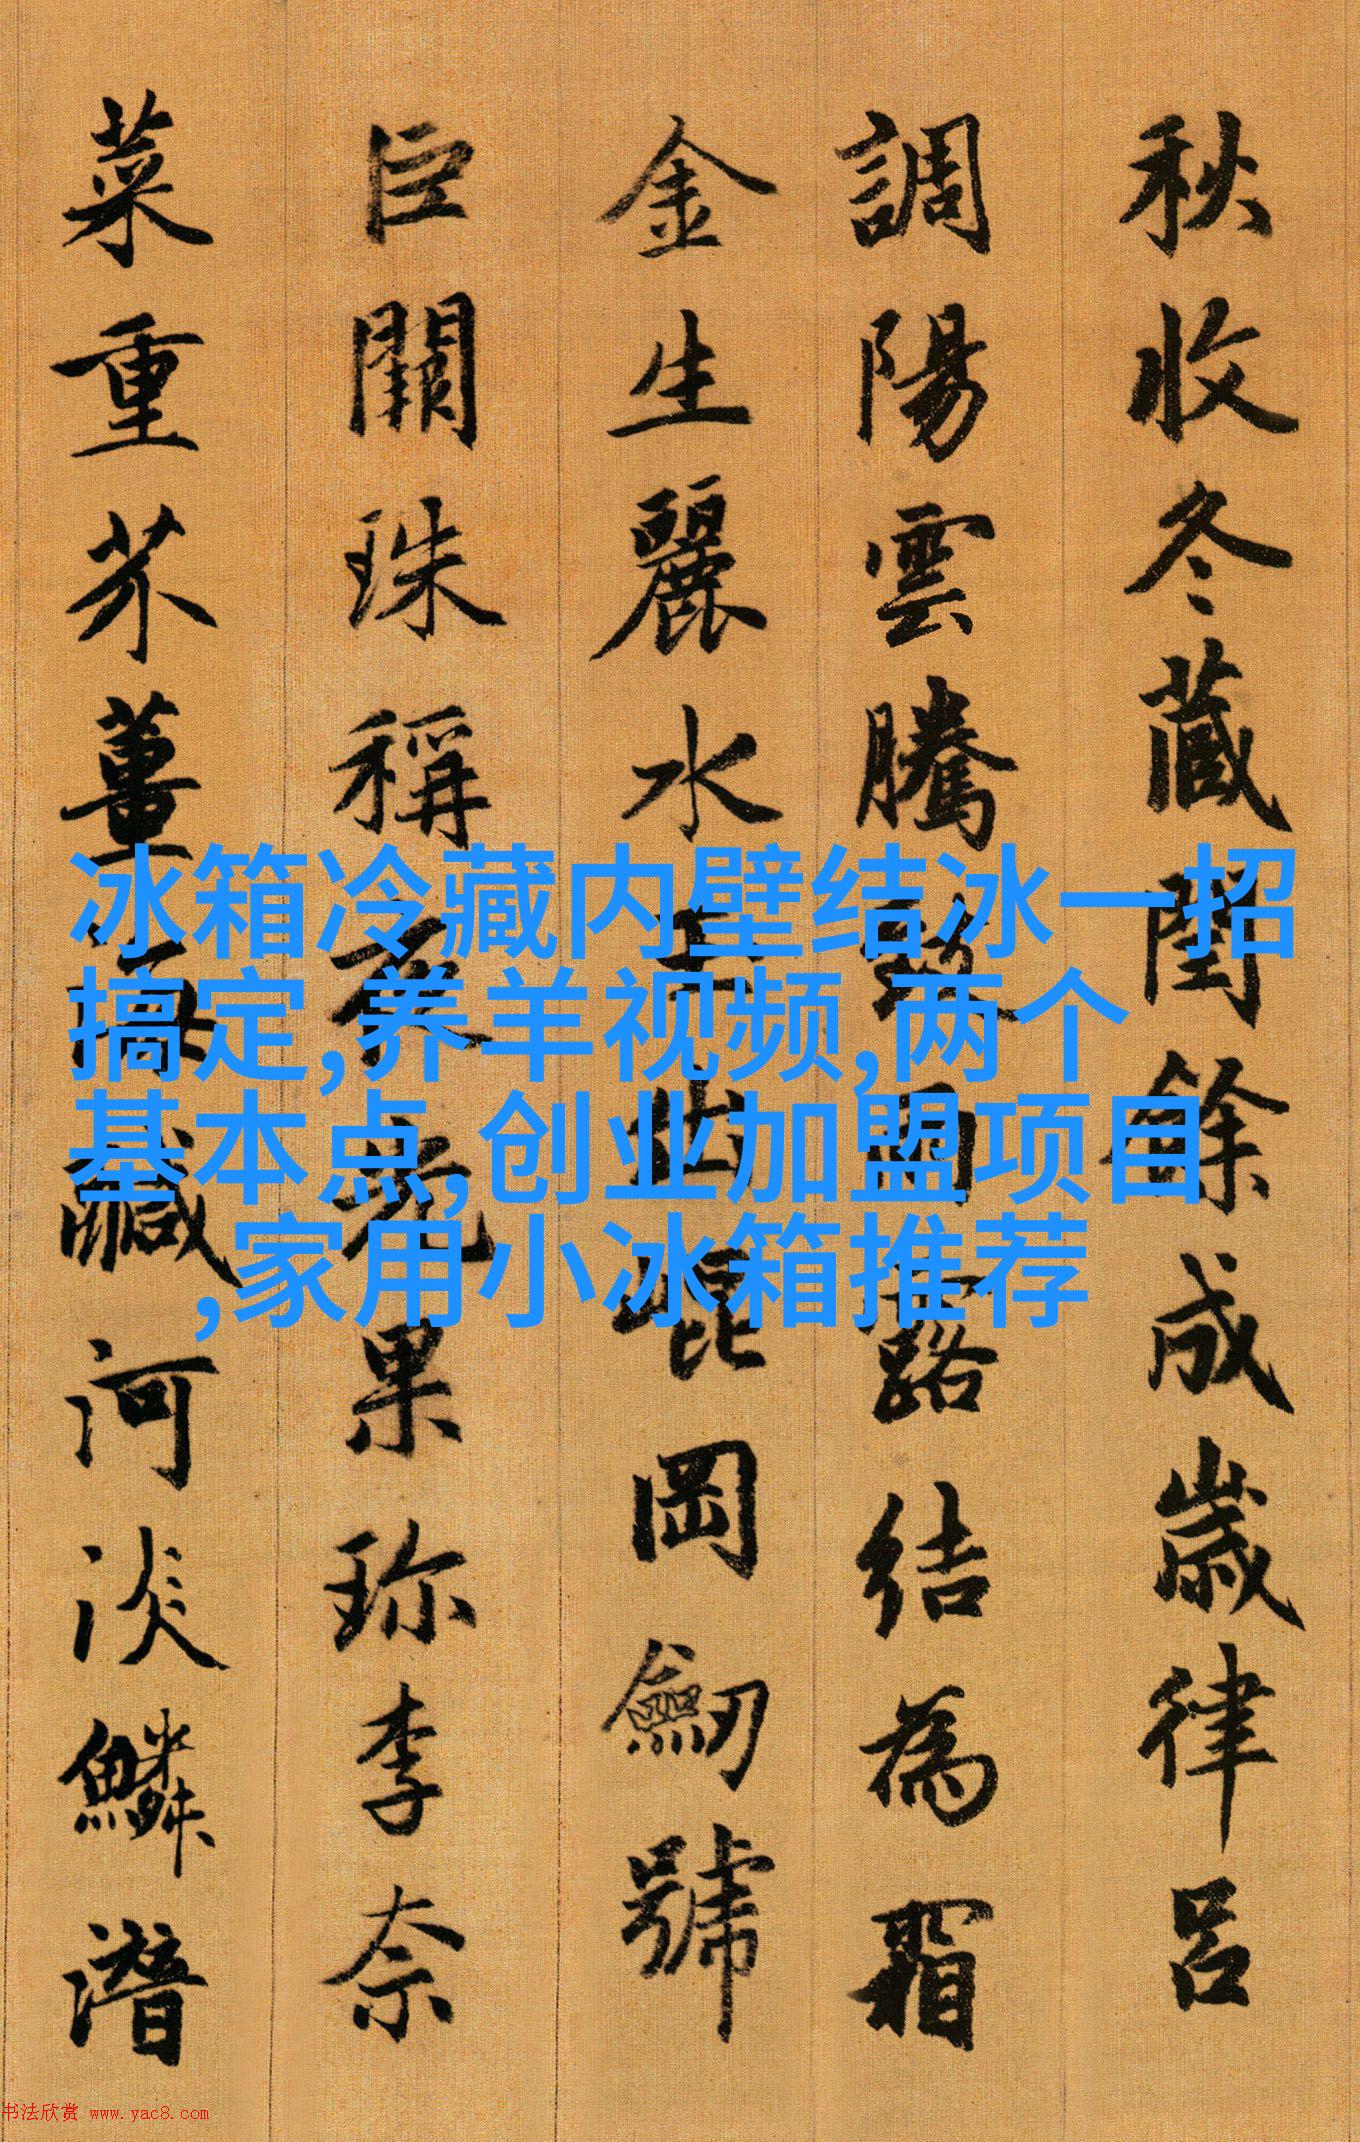 秋收冬藏閏餘成歲律呂
調陽雲騰致雨露結為霜
金生麗水玉出崐岡劒號
巨闕珠稱夜光果珎李柰
菜重芥薑海鹹河淡鱗潛
冰箱冷藏内壁结冰一招
搞定,养羊视频,两个
基本点,创业加盟项目
,家用小冰箱推荐
书法欣赏 www.yac8.com